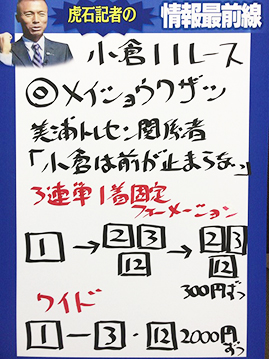 虎石記者の
情報最前線
小倉11レース
◎メイショウワザシ
美浦トレセン関係者
「小倉は前が止まらな」
3連単1着固定
フォーメーション
1→2 3 12→2 3 12
300円ずつ
ワイド
1-3・12 2000円ずつ